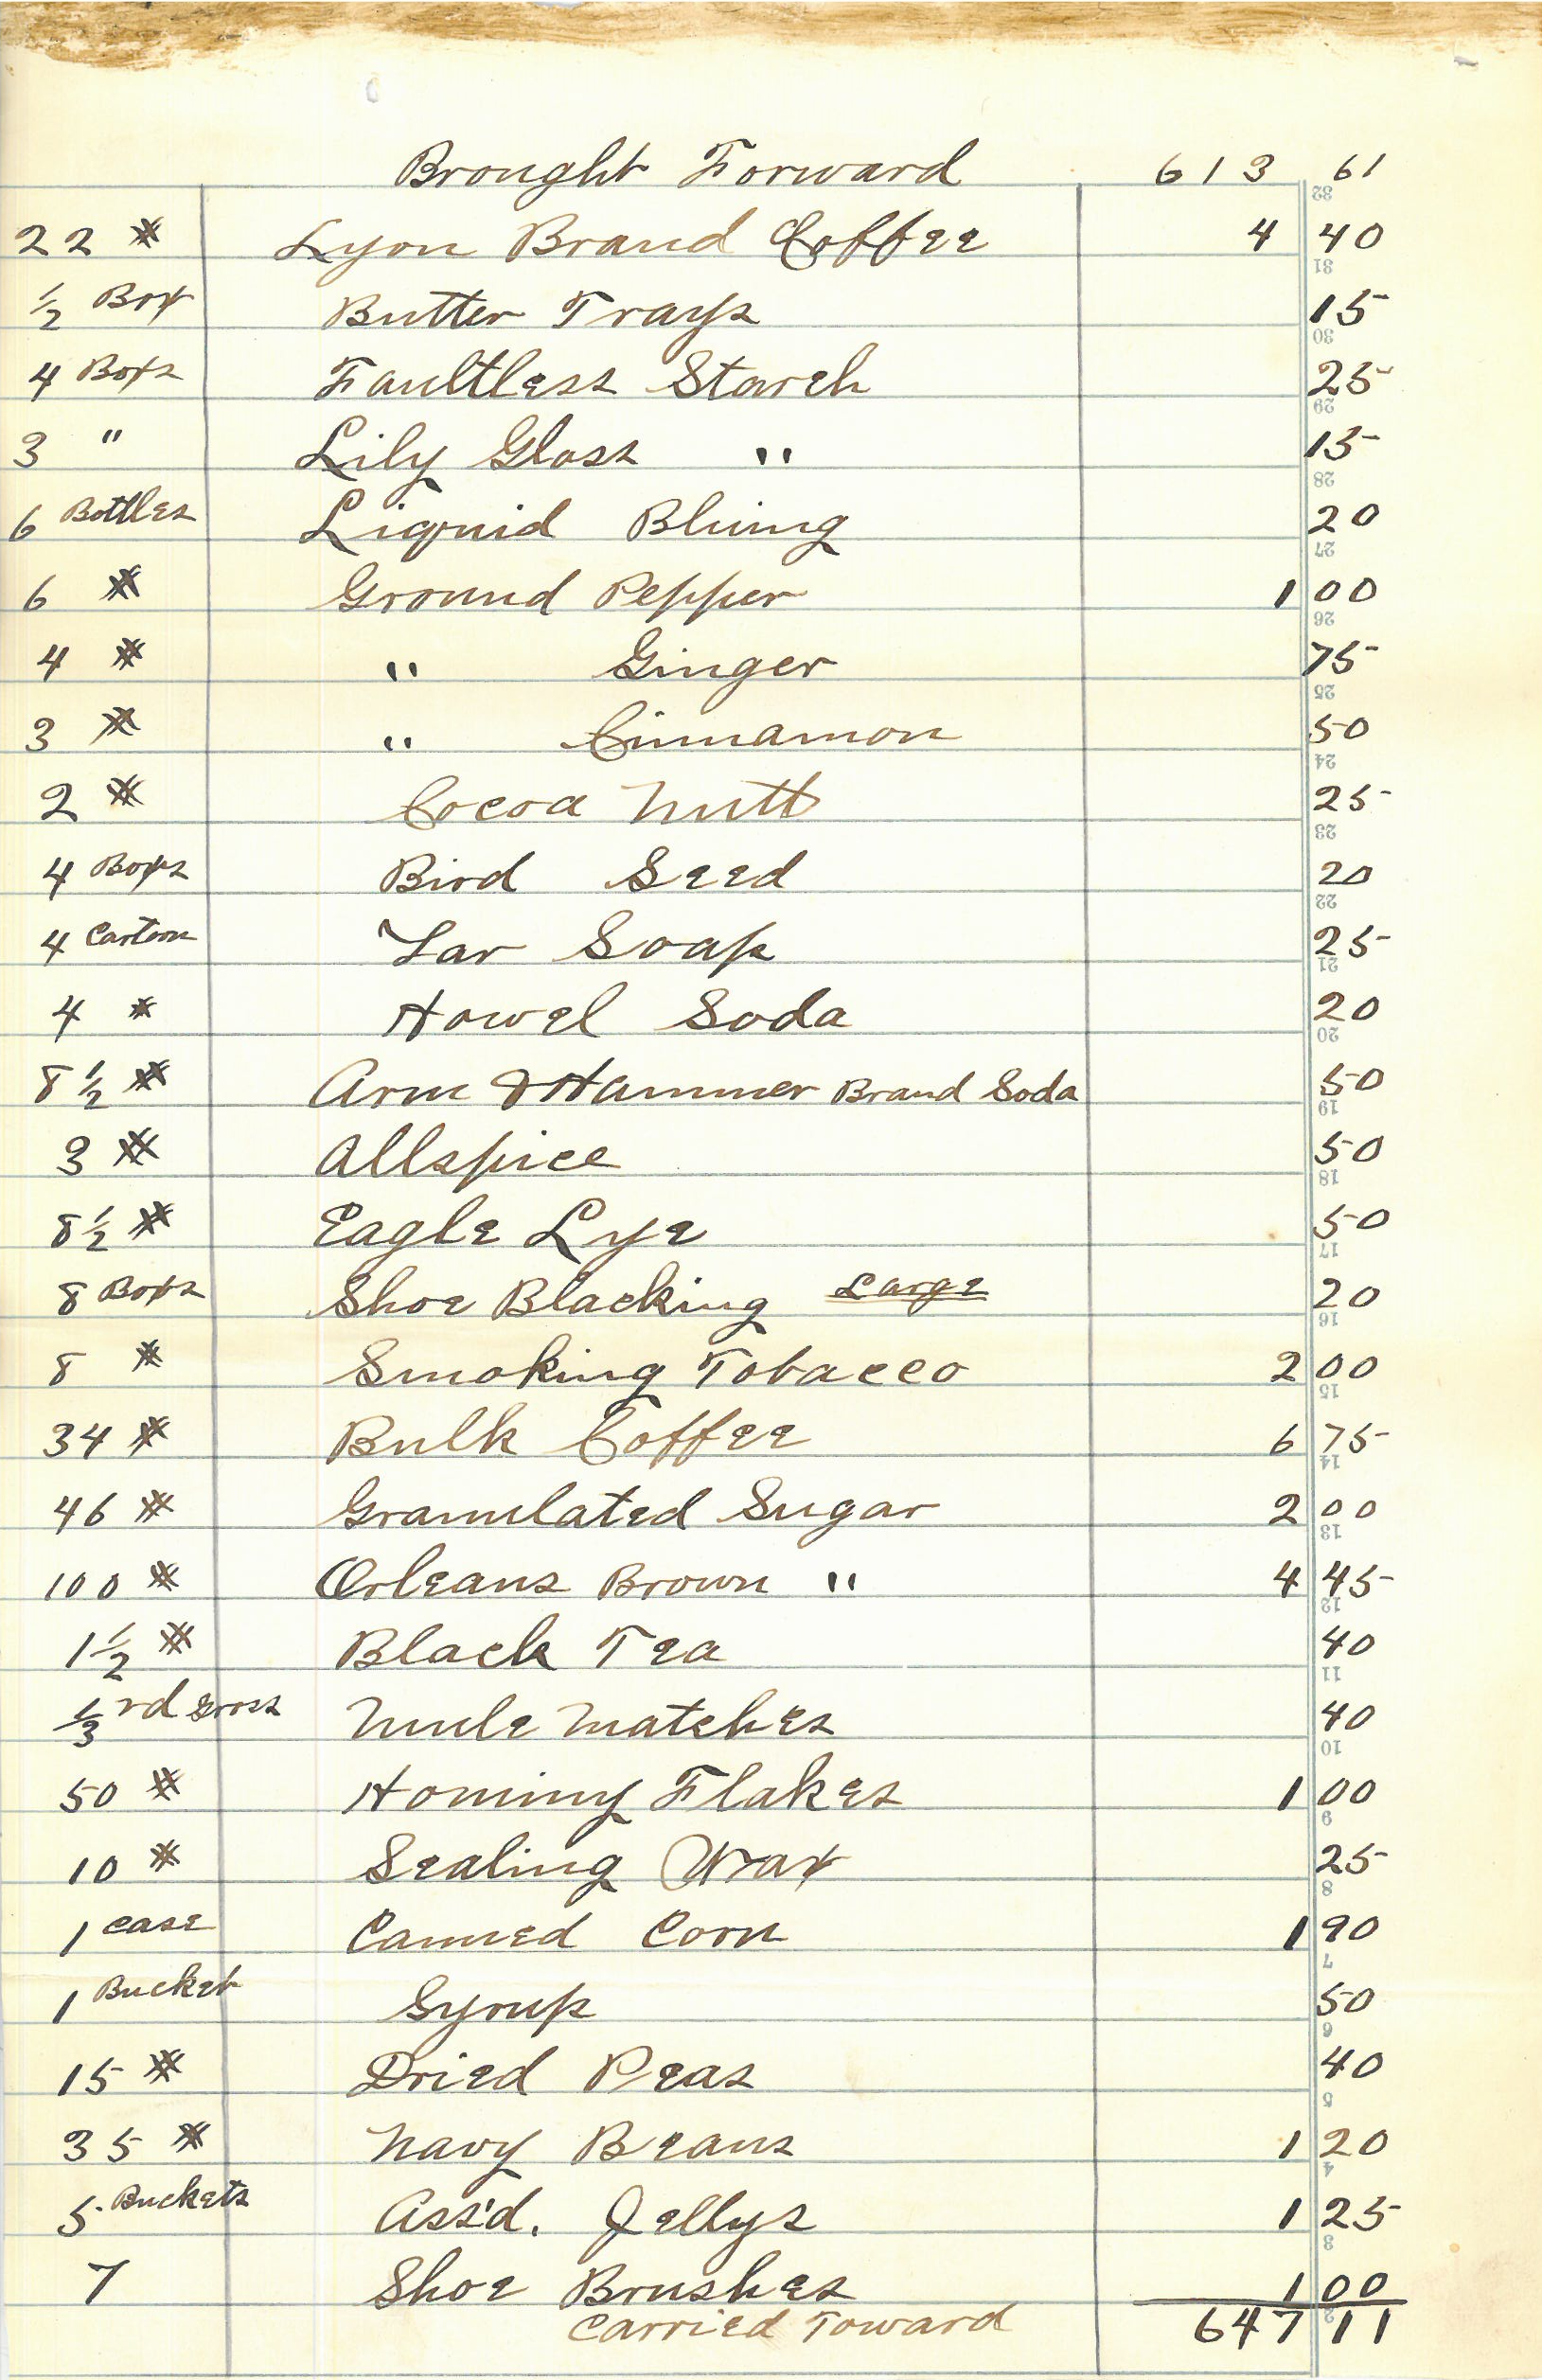 Brought Forward 613 61
22 # Lyon Brand Coffee 4 40
½ Box Butter Trays 15
4 Boxs Faultless Starch 25
3 " Lily Gloss " 15
6 Bottles Liquid Bluing 20
6 # Ground Pepper 1 00
4 # " Ginger 75
3 # " Cinnamon 50
2 # Cocoa Nutt 25
4 Boxs Bird Seed 20
4 Carton Tar Soap 25
4 # Howel Soda 20
8½ # Arm & Hammer Brand Soda 50
3 # Allspice 50
8½ # Eagle Lye 50
8 Boxs Shoe Blacking Large 20
8 # Smoking Tobacco 2 00
34 # Bulk Coffee 6 75
46 # Granulated Sugar 2 00
100 # Orleans Brown " 4 45
1½ # Black Tea 40
⅓rd Gross Mule Matches 40
50 # Hominy Flakes 1 00
10 # Sealing Wax 25
1 case Canned Corn 1 90
1 Bucket Syrup 50
15 # Dried Peas 40
35 # Navy Beans 1 20
5 Buckets Ass'd. Jellys 1 25
7 Shoe Brushes 1 00
Carried Toward 647 11